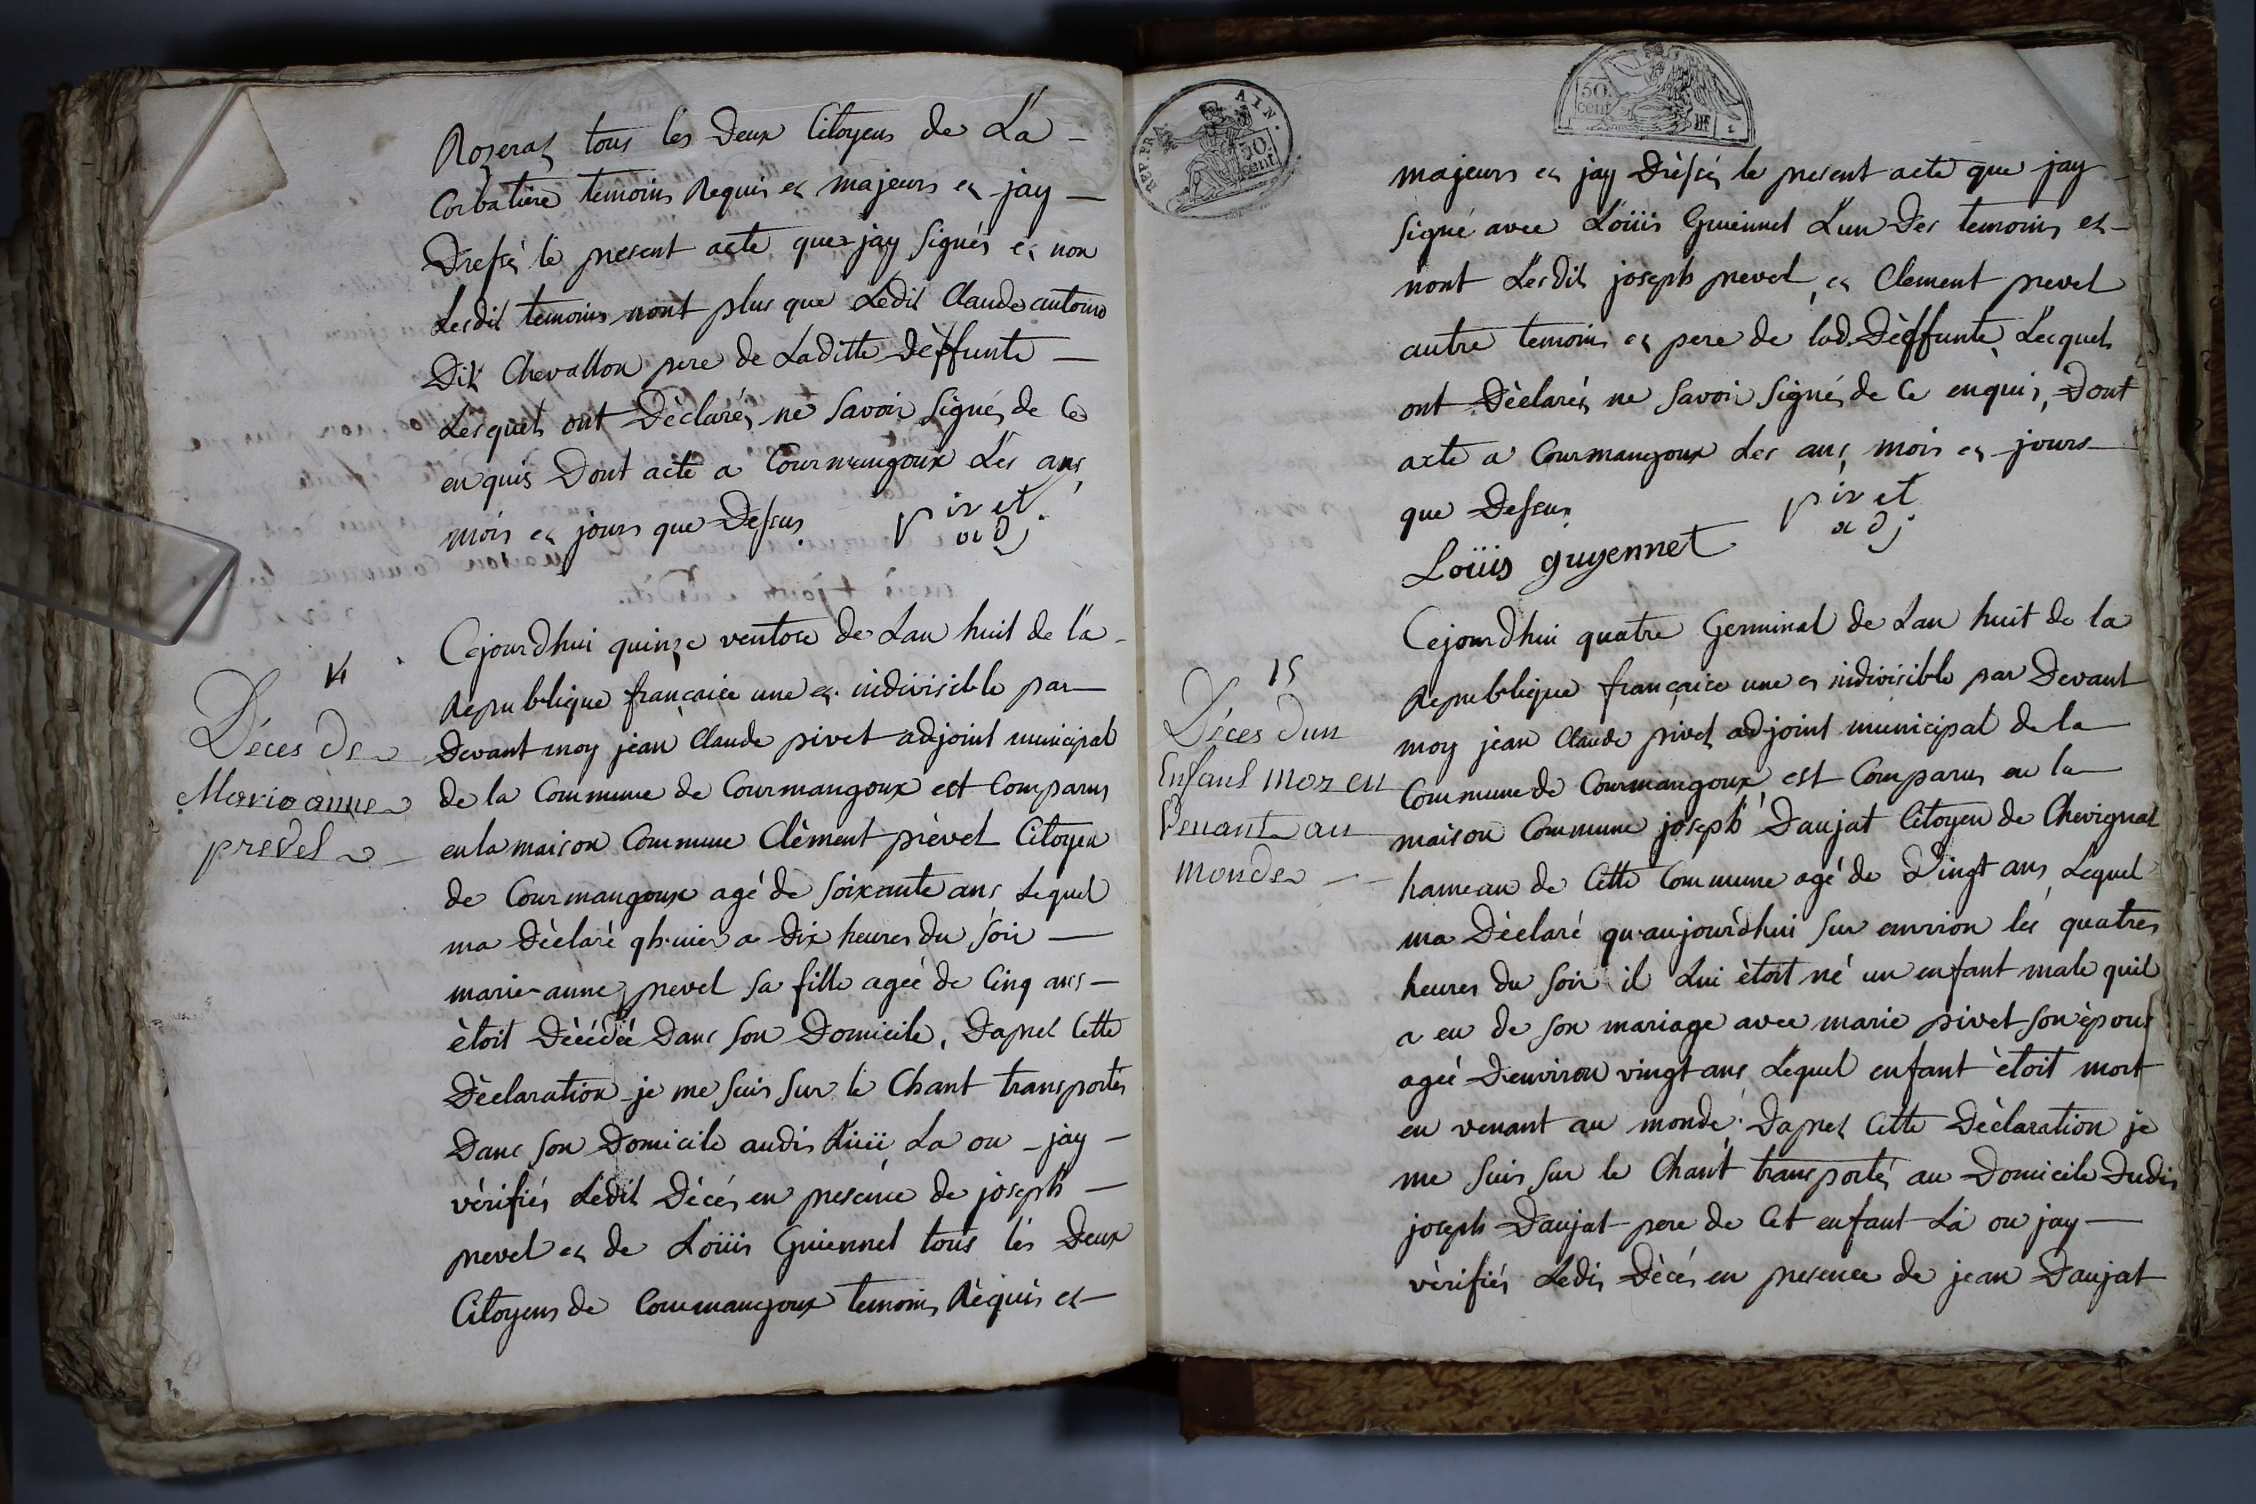 Rozeraz tous les Deux Citoyens de La
Corbatiere temoins Requis et majeurs et jay
Dressés le present acte que jay signés et non
Lesdit temoins nont plus que Ledit Claude antoine
Dit Chevallon pere de Laditte Deffunte
Lesquels ont Dèclarés ne savoir signés de Ce
enquis Dont acte a Courmangoux Les ans
mois et jours que Dessus
pivet
adj
14
Déces de
Marie anne
prevel
Cejourdhui quinze ventose de Lan huit de La
Republique françaice une et indivisible par
Devant moy jean Claude pivet adjoint municipal
de la Commune de Courmangoux est Comparus
en la maison Commune Clèment prèvel Citoyen
de Courmangoux agé de soixante ans Lequel
ma Dèclaré qhier a Dix heures du soir
marie-anne prevel sa fille ageé de Cinq ans
ètoit Dècédeé Dans son Domicile, Dapres Cette
Dèclaration je me suis sur le Chant transportés
Dans son Domicile audit La ou jay
vèrifiés Ledit Décés en presence de joseph
prevel et de Loüis Guiennet tous les Deux
Citoyens de Courmangoux temoins Rèquis et
REP. FRA. AIN.
50.
cent
50.
cent
majeurs et jay Drèssés le present acte que jay
signé avec Loüis Guiennet Lun Des temoins et
nont Lesdits joseph prevel et Clement prevel
autre temoins et pere de lad. Dèffunte Lesquels
ont Dèclarés ne savoir signés de Ce enquis, Dont
acte a Courmangoux les ans mois et jours
que Dessus
pivet
adj
Loüis guyennet
15
Déces dun
Enfant mor en
Venant au
Monde
Cejourdhui quatre Germinal de Lan huit de la
Republique françaice une et indivisible par Devant
moy jean Claude pivet adjoint municipal de la
Commune de Courmangoux est Comparus en la
maison Commune joseph Daujat Citoyen de Chevignat
hameau de Cette Commune agé de Vingt ans Lequel
ma Dèclaré quaujourdhui sur environ les quatres
heures du soir il Lui ètoit né un enfant male quil
a eu de son mariage avec marie pivet son èpous
ageé Denviron vingt ans Lequel enfant ètoit mort
en venant au monde. Dapres Cette Dèclaration je
me suis sur le Chant transportés au Domicile Dudit
joseph Daujat pere de Cet enfant La ou jay
vèrifiés Ledit Dècés en presence de jean Daujat